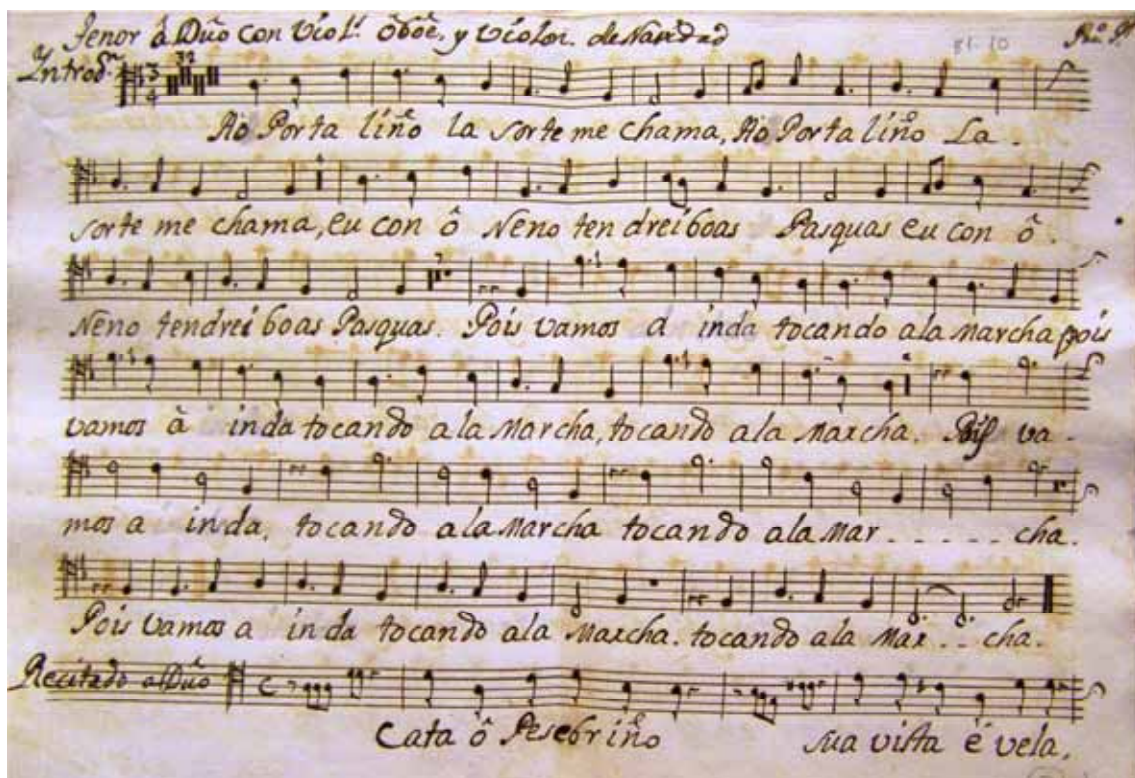 Tenor à Dũo con Viol.s ôboê, y Violon. de Navidad
81-10
Introd.n 3/4 32
Ao Porta liño la sorte me chama, Ao Portaliño La.
sorte me chama, eu con ô Neno ten drei boas Pasquas eu con ô.
Neno tendrei boas Pasquas. Pois vamos a inda tocando ala Marcha pois
vamos à inda tocando ala Marcha, tocando ala Marcha. Pois va-
mos a inda, tocando ala Marcha tocando ala Mar . . . . . cha.
Pois vamos a inda tocando ala Marcha. tocando ala Mar . . cha.
Recitado a Dũo C
Cata ô Pesebriño sua vista é vela.